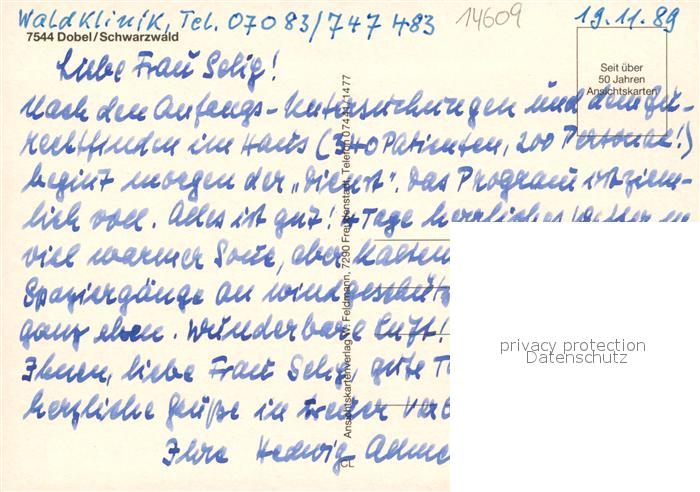 Waldklinik, Tel. 07083/747 483
14609
19.11.89
7544 Dobel/Schwarzwald
Seit über
50 Jahren
Ansichtskarten
Liebe Frau Selig!
Nach den Anfangs-Untersuchungen und dem zu-
rechtfinden im Haus (340 Patienten, 200 Personal!)
begint morgen der „Dienst". Das Program ist ziem-
lich voll. Alles ist gut! 4 Tage herrliches Wetter m
viel warmer Sone, aber kalten
Spaziergänge an windgeschütz
ganz eben. Wunderbare Luft!
Ihnen, liebe Frau Selig, gute T
herzliche Grüße in treuer Verb
Ihre Hedwig
Ansichtskartenverlag W. Feldmann, 7290 Freudenstadt, Telefon 07441/1477
privacy protection
Datenschutz